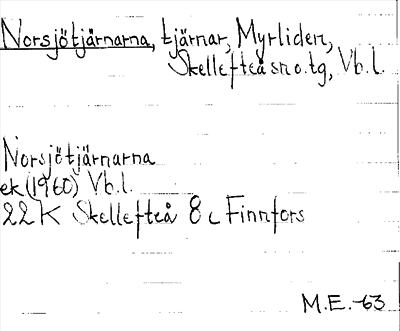 Norsjötjärnarna, tjärnar, Myrliden,
Skellefteå sn o. tg, Vb.l.
Norsjötjärnarna
ek (1960) Vb.l.
22K Skellefteå 8c Finnfors
M.E.-63